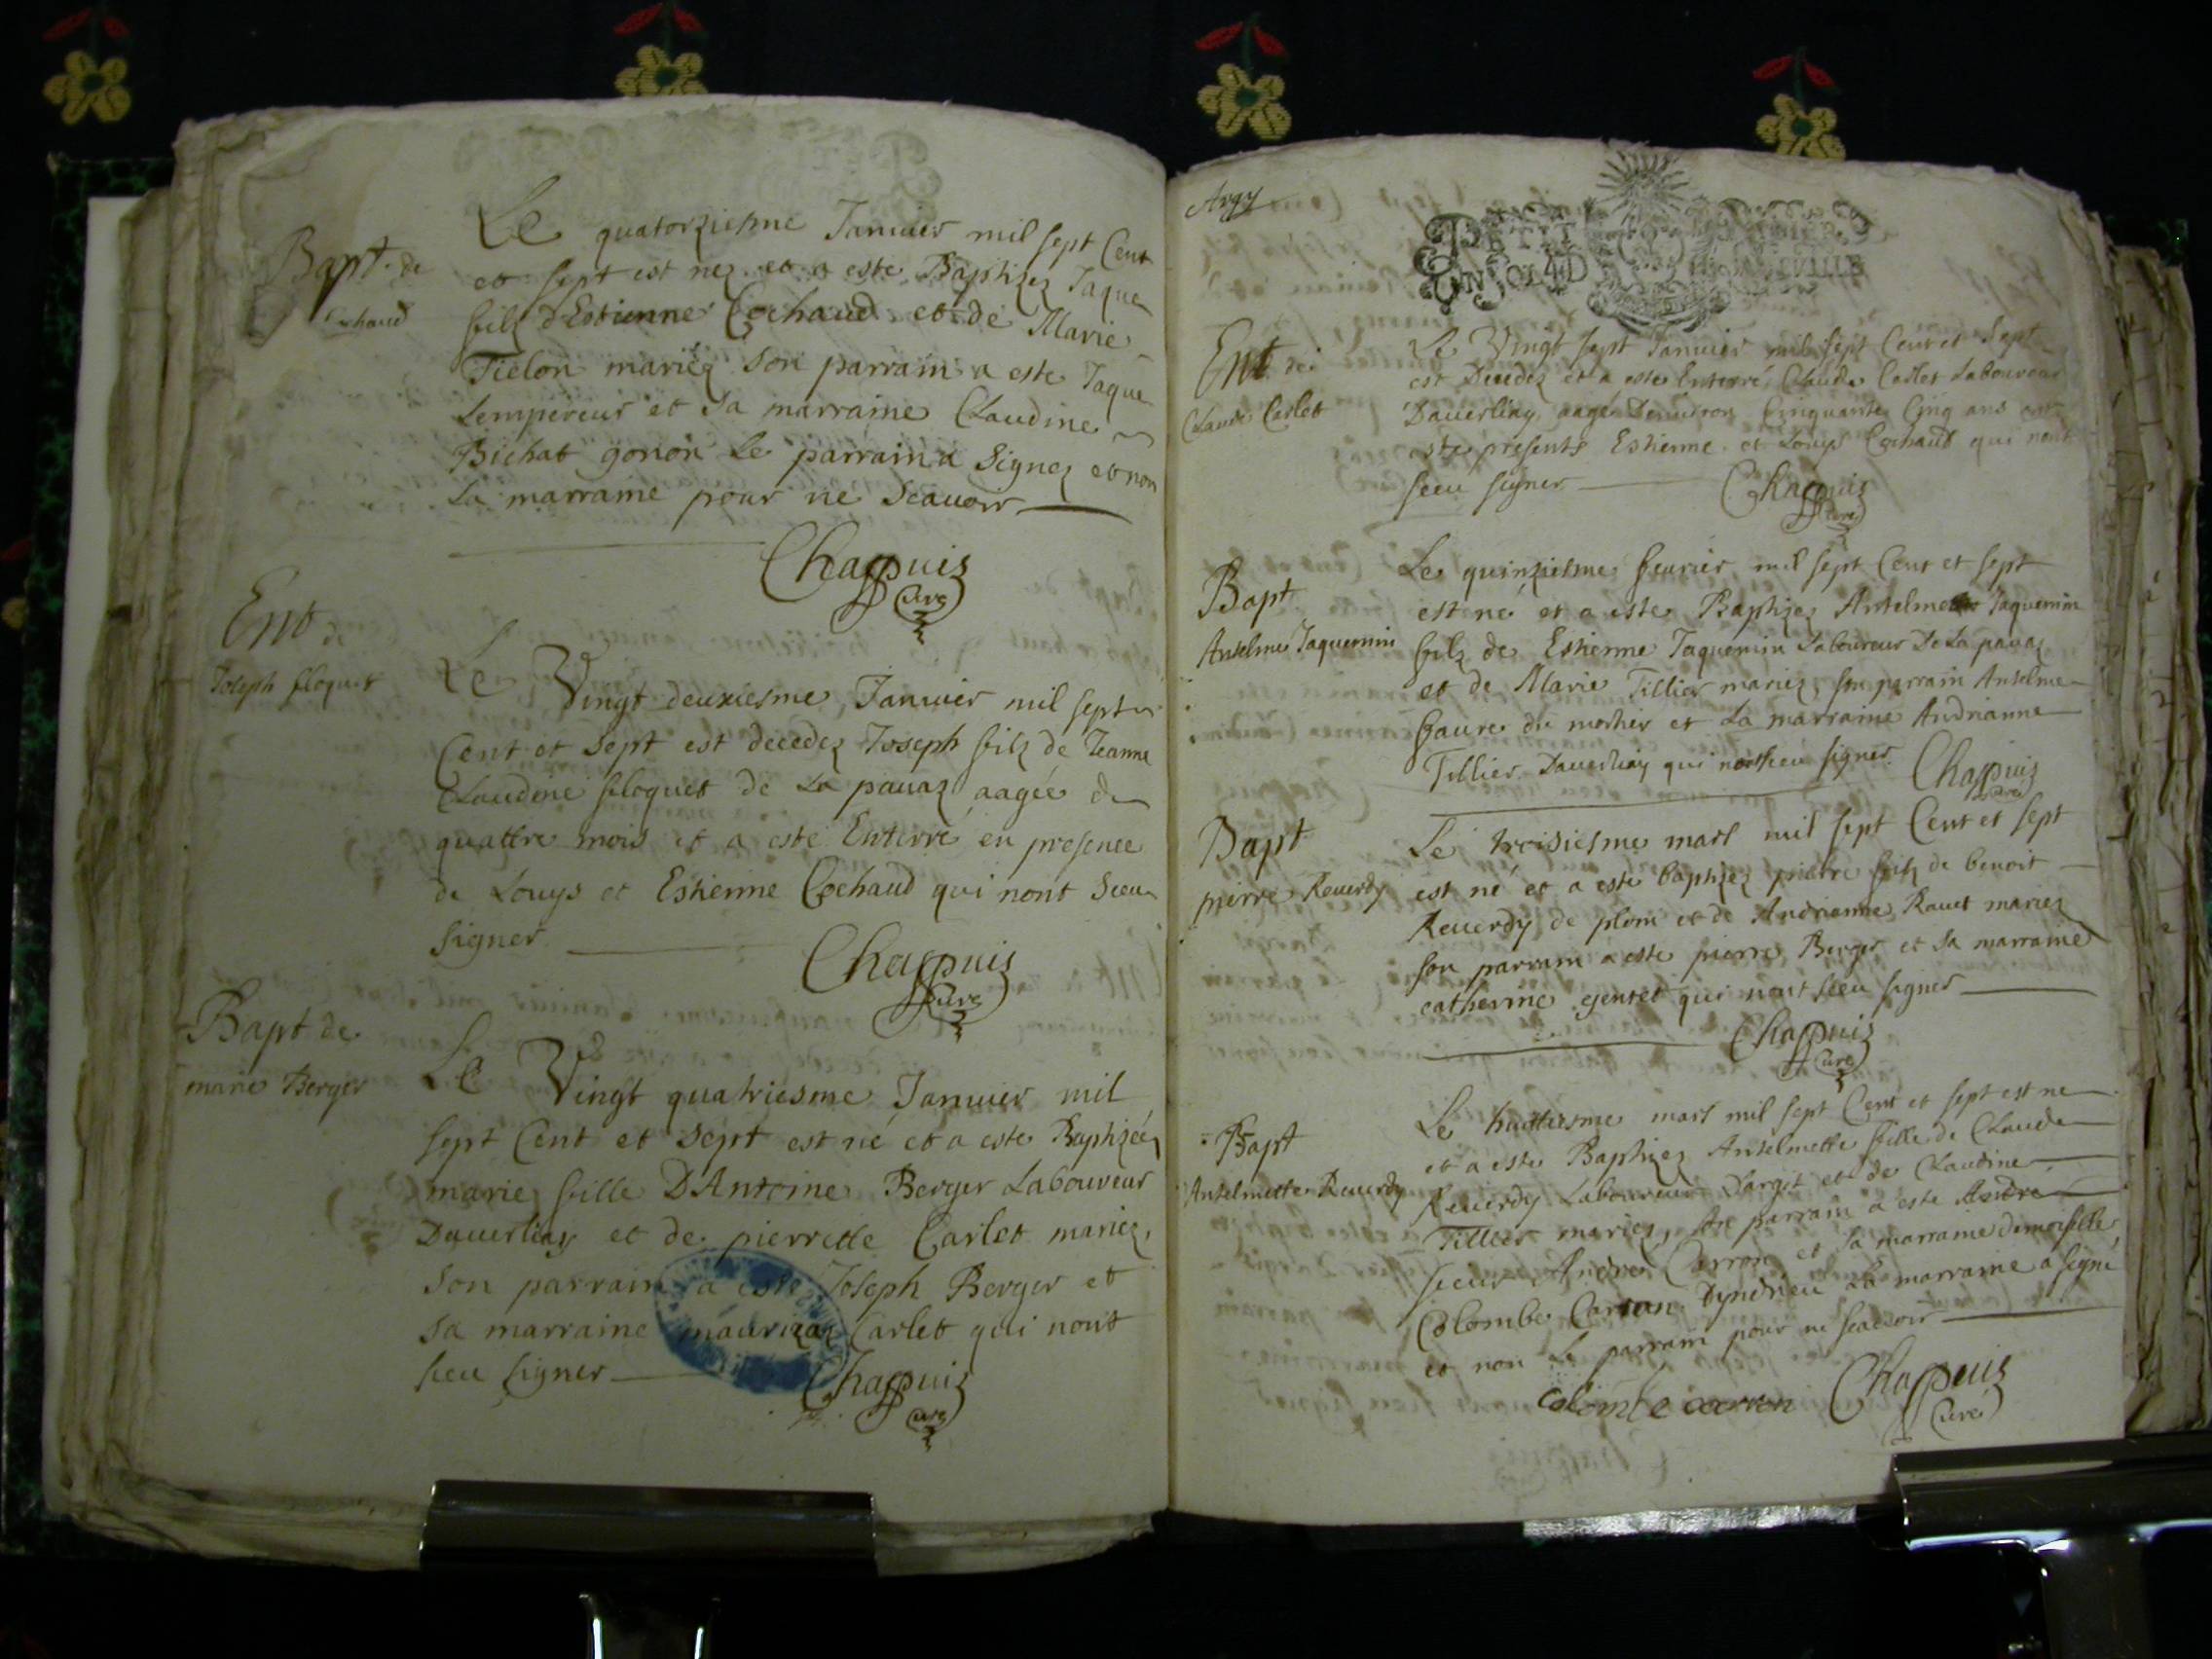 Bapt. de
Cochaud
Le quatorziesme Januier mil sept Cent
et sept est nez et a este Baptizez Jaque
filz d'Estienne Cochaud et de Marie
Tielon mariez son parrain a este Jaque
Lempereur et sa marraine Claudine
Bichat gonon le parrain a Signez et non
La marraine pour ne Scauoir
Chappuis
Curé
Ent de
Joseph floquet
Le Vingt deuxiesme Januier mil sept
Cent et sept est decedez Joseph filz de Jeanne
Claudine floquet de La pauaz aagée de
quattre mois et a esté Enterré en presence
de Louys et Estienne Cochaud qui nont Sceu
Signer
Chappuis
Curé
Bapt de
marie Berger
Le Vingt quatriesme Januier mil
sept Cent et sept est né et a este Baptizée
marie fille D'Antoine Berger Laboureur
Dauerliay et de pierrette Carlet mariez,
Son parrain a este Joseph Berger et
Sa marraine maurizaz Carlet qui nont
sceu signer
Chappuis
Curé
Argy
PETIT
Ent. de
Claude Carlet
Le Vingt sept Januier mil sept Cent et Sept
est Decedez et a este Enterré Claude Carlet Laboureur
Dauerliay aagé Denuiron Cinquante Cinq ans ont
este presents Estienne et Louys Cochaud qui nont
sceu signer
Chappuis
Curé
Bapt
Anselme Jaquemin
Le quinziesme feurier mil sept Cent et sept
est né et a este Baptizez Antelme Jaquemin
filz de Estienne Jaquemin Laboureur De La pauaz
et de Marie Tillier mariez, son parrain Anselme
faure du morhier et La marraine Andrianne
Tillier Dauerliay qui nont sceu signer
Chappuis
Curé
Bapt
pierre Reuerdy
Le troisiesme mars mil sept Cent et sept
est né et a este baptizez pierre filz de benoit
Reuerdy de plom et de Andrianne Rauet mariez
son parrain a este pierre Berger et sa marraine
catherine gentet qui nont sceu signer
Chappuis
Curé
Bapt
Antelmette Reuerdy
Le huittiesme mars mil sept Cent et sept est ne
et a este Baptizez Antelmette fille de Claude
Reuerdy Laboureur Dargit et de Claudine
Tillier mariez, son parrain a este Andre
sieur Andre Carron et sa marraine demoiselle
Colombe Carron Dyndrieu La marraine a signé
et non Le parrain pour ne scauoir
Colombe carron
Chappuis
Curé